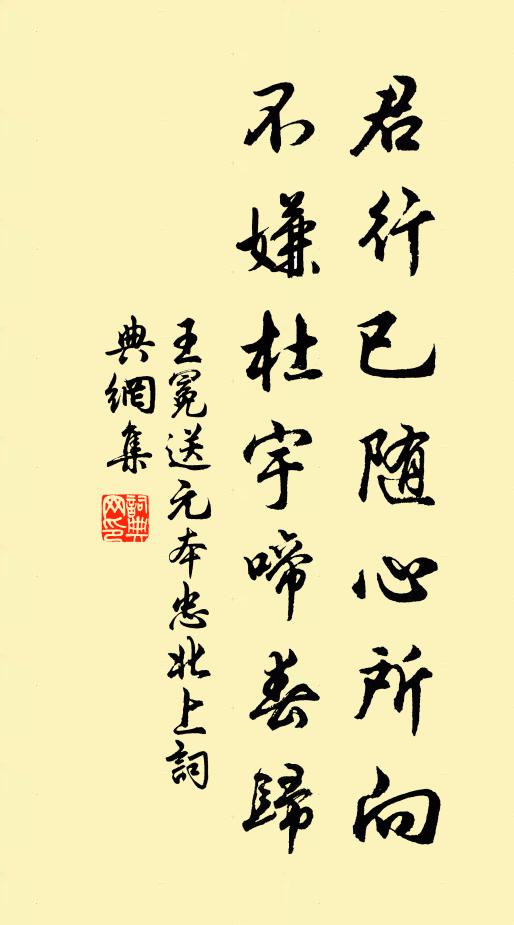 君行已随心所向
不嫌杜宇啼春歸
王冕送元本忠北上詞
典網集
詞典
网印